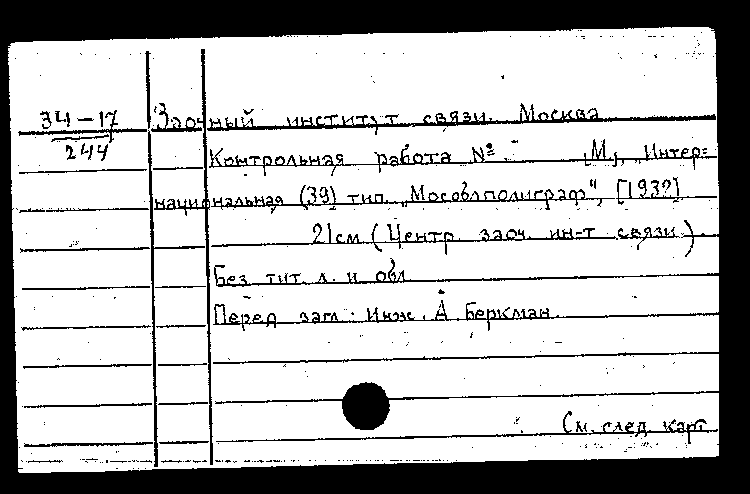 34-17
244
Заочный институт связи. Москва
Контрольная работа №. М., „Интер-
национальная (39) тип. „Мособлполиграф“, [193?]
21 см (Центр. заоч. ин-т связи).
Без тит. л. и обл
Перед загл: Инж. А. Беркман.
См. след. карт